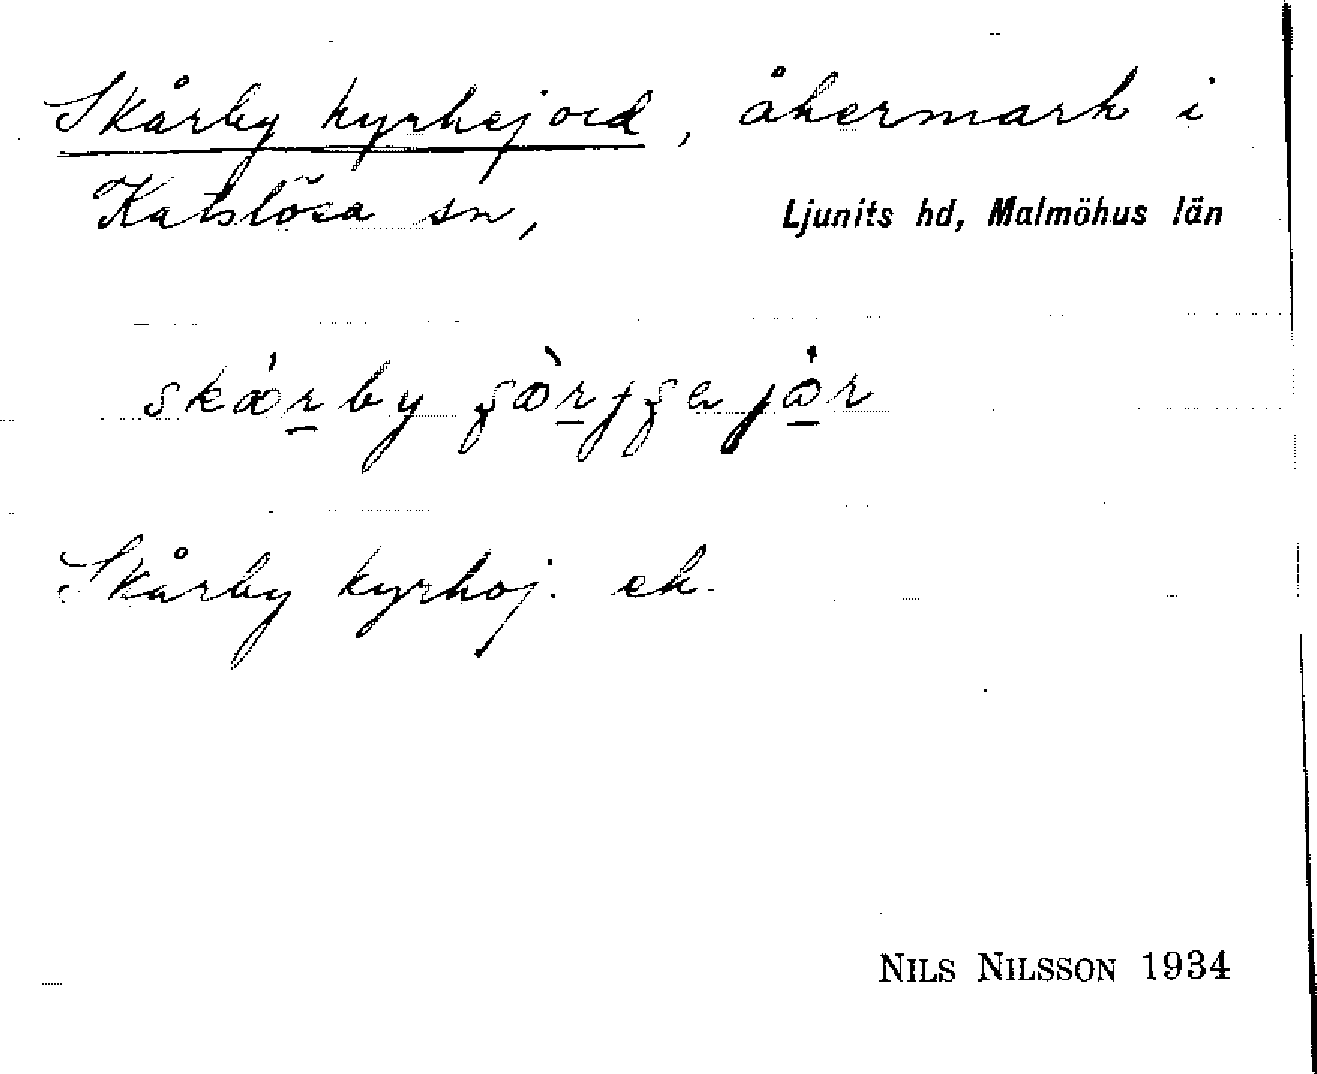 Skårby kyrkejord, åkermark i
Katslösa sn, Ljunits hd, Malmöhus län
Skårby kyrkoj. ek.
NILS NILSSON 1934